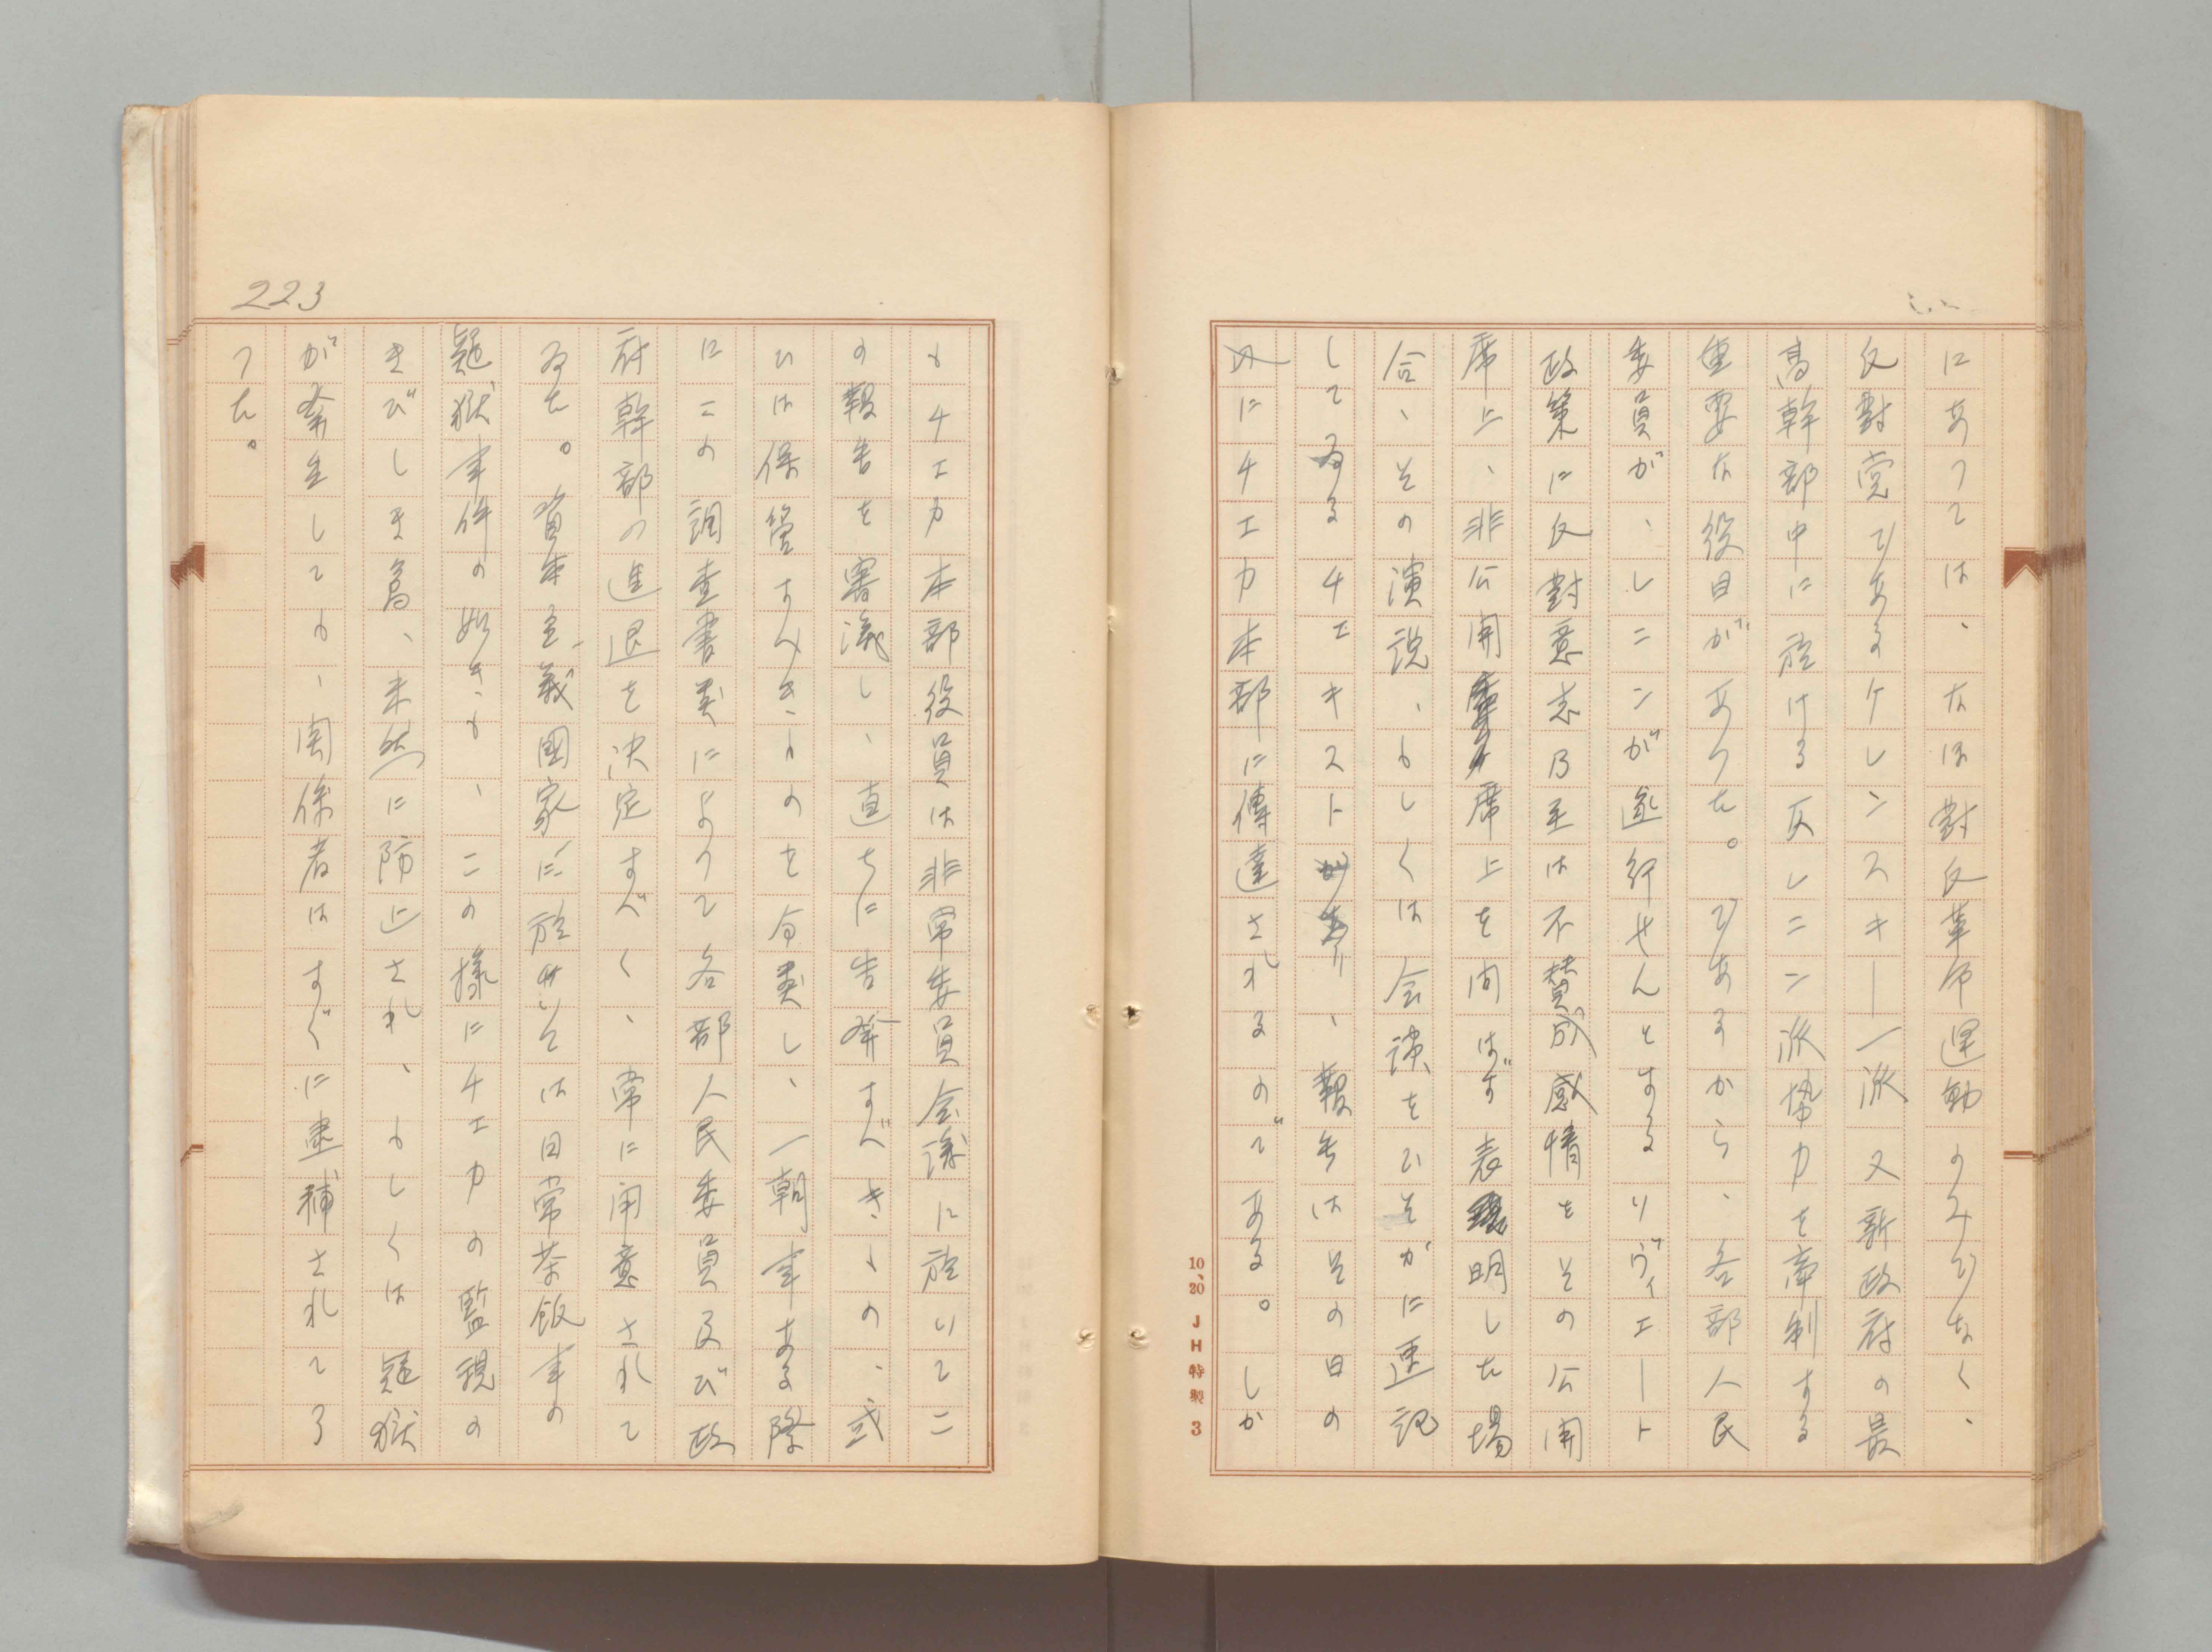 にあつては、なほ對反革命運動のみでなく、
反對党であるケレンスキー一派又新政府の最
高幹部中に於ける反レニン派勢力を牽制する
重要な役目があつた。であるから、各部人民
委員が、レニンが遂行せんとするソヴィエート
政策に反對意志乃至は不賛成感情をその公開
席上、非公開席上を問はず表明した場
合、その演説、もしくは会談をひそかに速記
してゐるチエキストがあり、報告はその日の
内にチエカ本部に傳達されるのである。しか
10、20 JH特製 3
もチエカ本部役員は非常委員会議に於いてこ
の報告を審議し、直ちに告發すべきもの、或
ひは保管すべきものを分類し、一朝事ある際
にこの調査書類によつて各部人民委員及び政
府幹部の進退を決定すべく、常に用意されて
ゐた。資本主義國家に於いては日常茶飯事の
疑獄事件の如きも、この様にチエカの監視の
きびしき為、未然に防止され、もしくは疑獄
が発生しても、関係者はすぐに逮捕されてろ
つた。
223